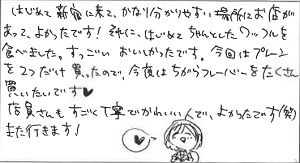 はじめて新宿に来て、かなり分かりやすい場所にお店が
あって、よかったです! 純に、はじめてちゃんとしたワッフルを
食べました。すっごいおいしかったです。今回はプレーン
を2つだけ買ったので、今度はちがうフレーバーをたくさん
買いたいです♥
店員さんもすごく丁寧でかわいい人で、よかったです(笑)
また行きます♪